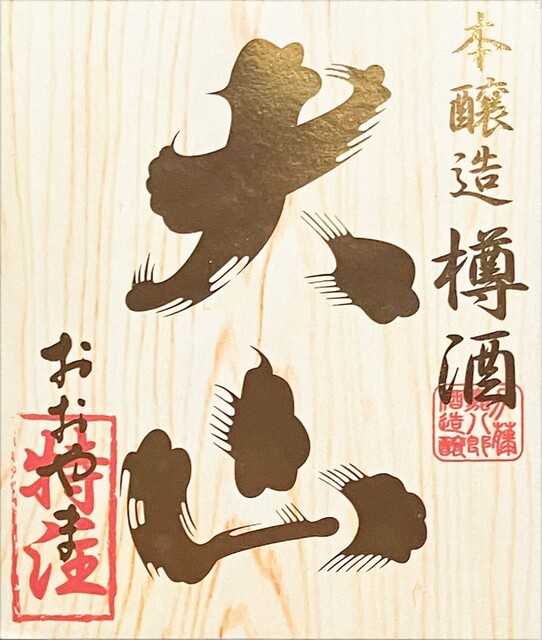 本醸造樽酒
大山
おおやま
特注
加藤
嘉八郎
酒造醸